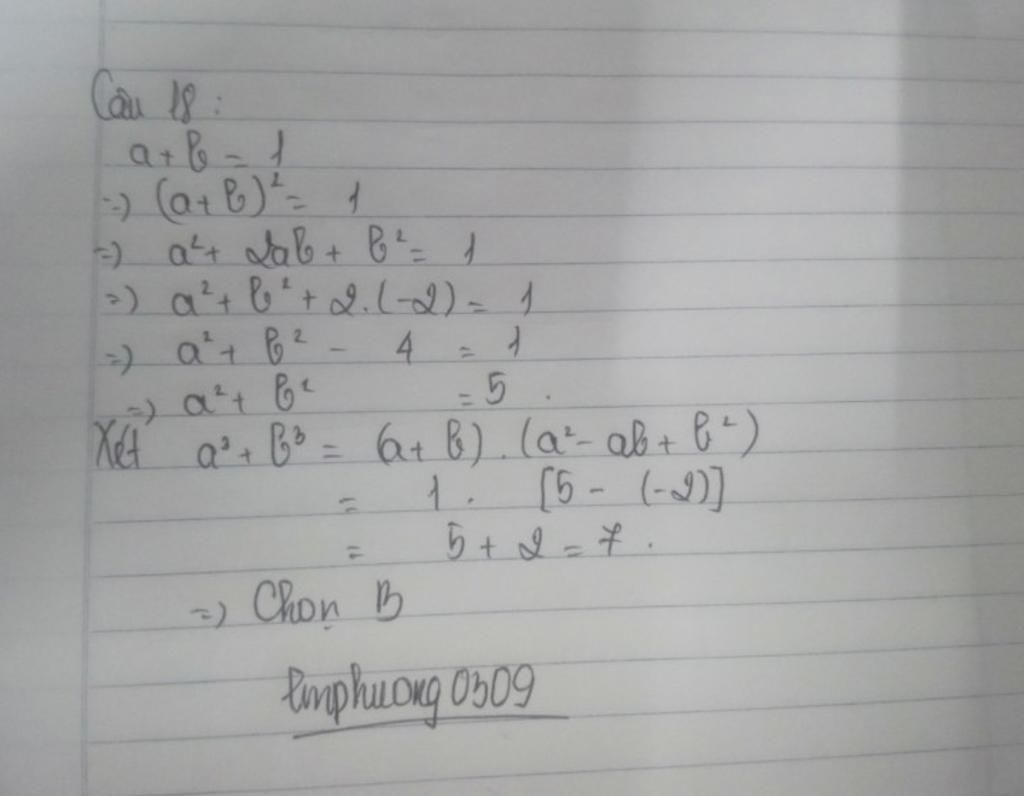 Câu 18:
a + b = 1
=) (a + b)² = 1
=) a² + 2ab + b² = 1
=) a² + b² + 2.(-2) = 1
=) a² + b² - 4 = 1
=) a² + b² = 5.
Xét a³ + b³ = (a + b).(a² - ab + b²)
= 1. [5 - (-2)]
= 5 + 2 = 7.
=) Chọn B